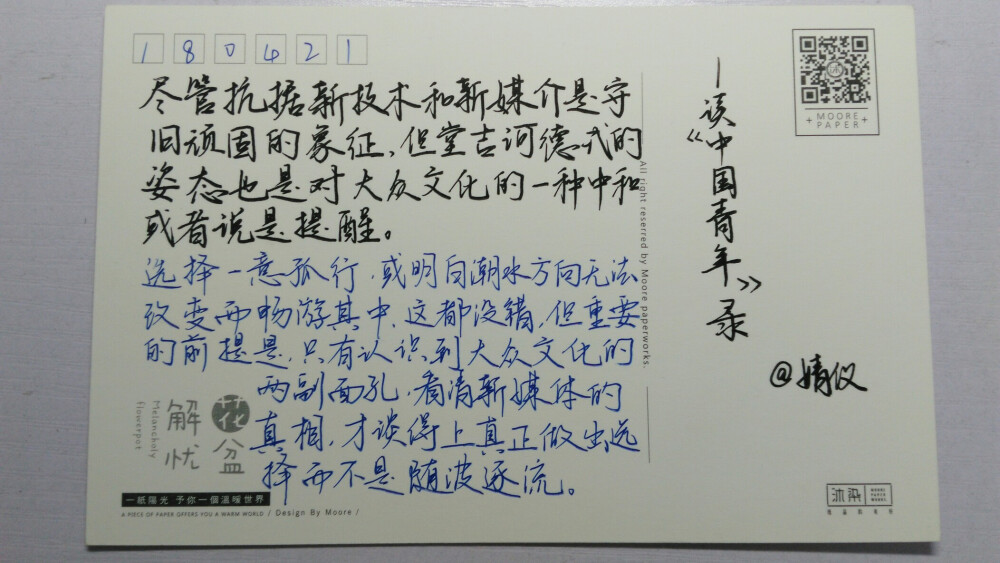 180421
尽管抗据新技术和新媒介是守
旧顽固的象征，但堂吉诃德式的
姿态也是对大众文化的一种中和
或者说是提醒。
选择一意孤行，或明白潮水方向无法
改变而畅游其中，这都没错，但重要
的前提是，只有认识到大众文化的
两副面孔，看清新媒体的
真相，才谈得上真正做出选
择而不是随波逐流。
—读《中国青年》录
@婧仪
MOORE
PAPER
All right reserred by Moore paperworks.
解忧
花盆
Melancholy
flowerpot
一紙陽光 予你一個溫暖世界
A PIECE OF PAPER OFFERS YOU A WARM WORLD / Design By Moore /
沐染
MOORE
PAPER
WORKS